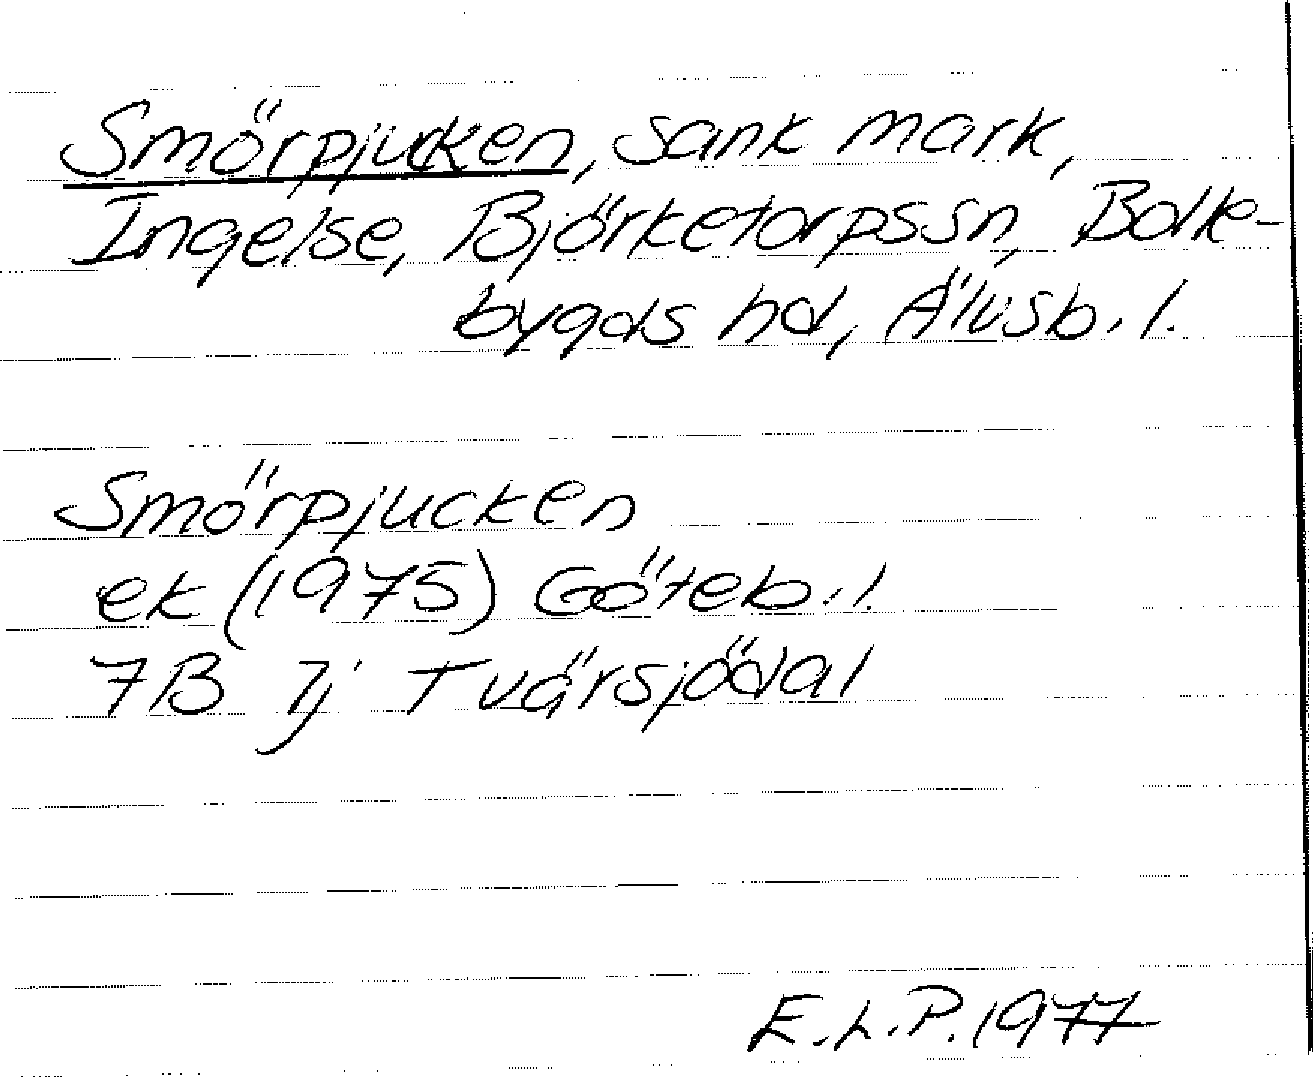 Smörpjucken, sank mark,
Ingelse, Björketorps sn, Bolle-
bygds hd, Älvsb. l.
Smörpjucken
ek (1975) Göteb. l.
7B 7j Tvärsjödal
E.L.P. 1977